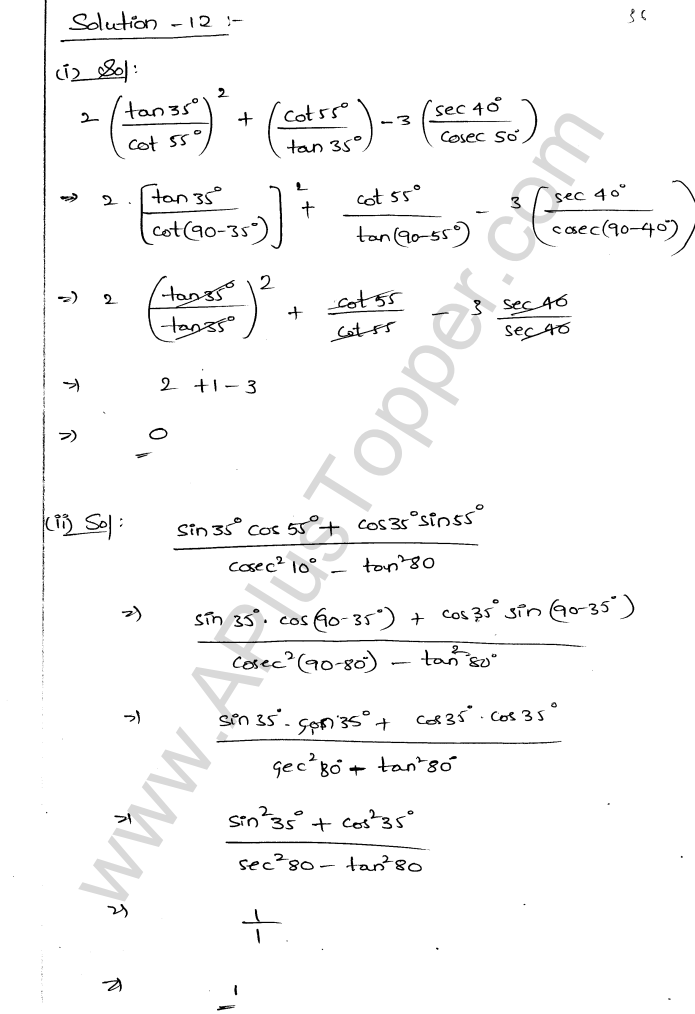 36
Solution - 12 :-
(i) Sol:
2 (tan 35° / cot 55°)² + (cot 55° / tan 35°) - 3 (sec 40° / cosec 50°)
=> 2 . [tan 35° / cot(90-35°)]² + cot 55° / tan(90-55°) - 3 (sec 40° / cosec(90-40°))
=> 2 (tan35° / tan35°)² + cot 55 / cot 55 - 3 sec 40 / sec 40
=> 2 + 1 - 3
=> 0
(ii) Sol:
sin 35° cos 55° + cos 35° sin 55° / cosec² 10° - tan² 80
=> sin 35° . cos(90-35°) + cos 35° sin (90-35°) / cosec² (90-80°) - tan² 80°
=> sin 35° . sin 35° + cos 35° . cos 35° / sec² 80° + tan² 80°
=> sin² 35° + cos² 35° / sec² 80 - tan² 80
=> 1 / 1
=> 1
www.APlusTopper.com